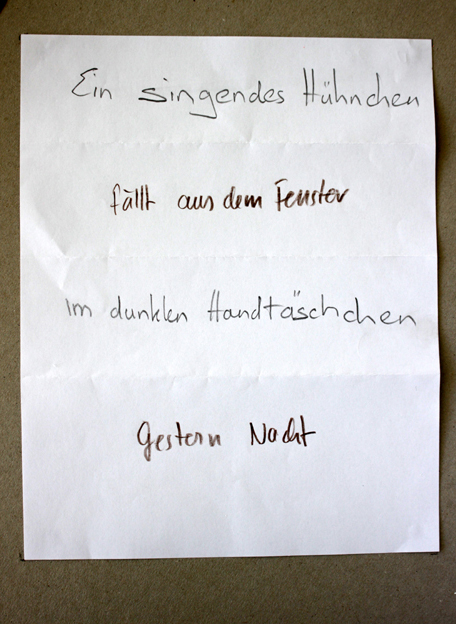 Ein singendes Hühnchen
fällt aus dem Fenster
im dunklen Handtäschchen
Gestern Nacht